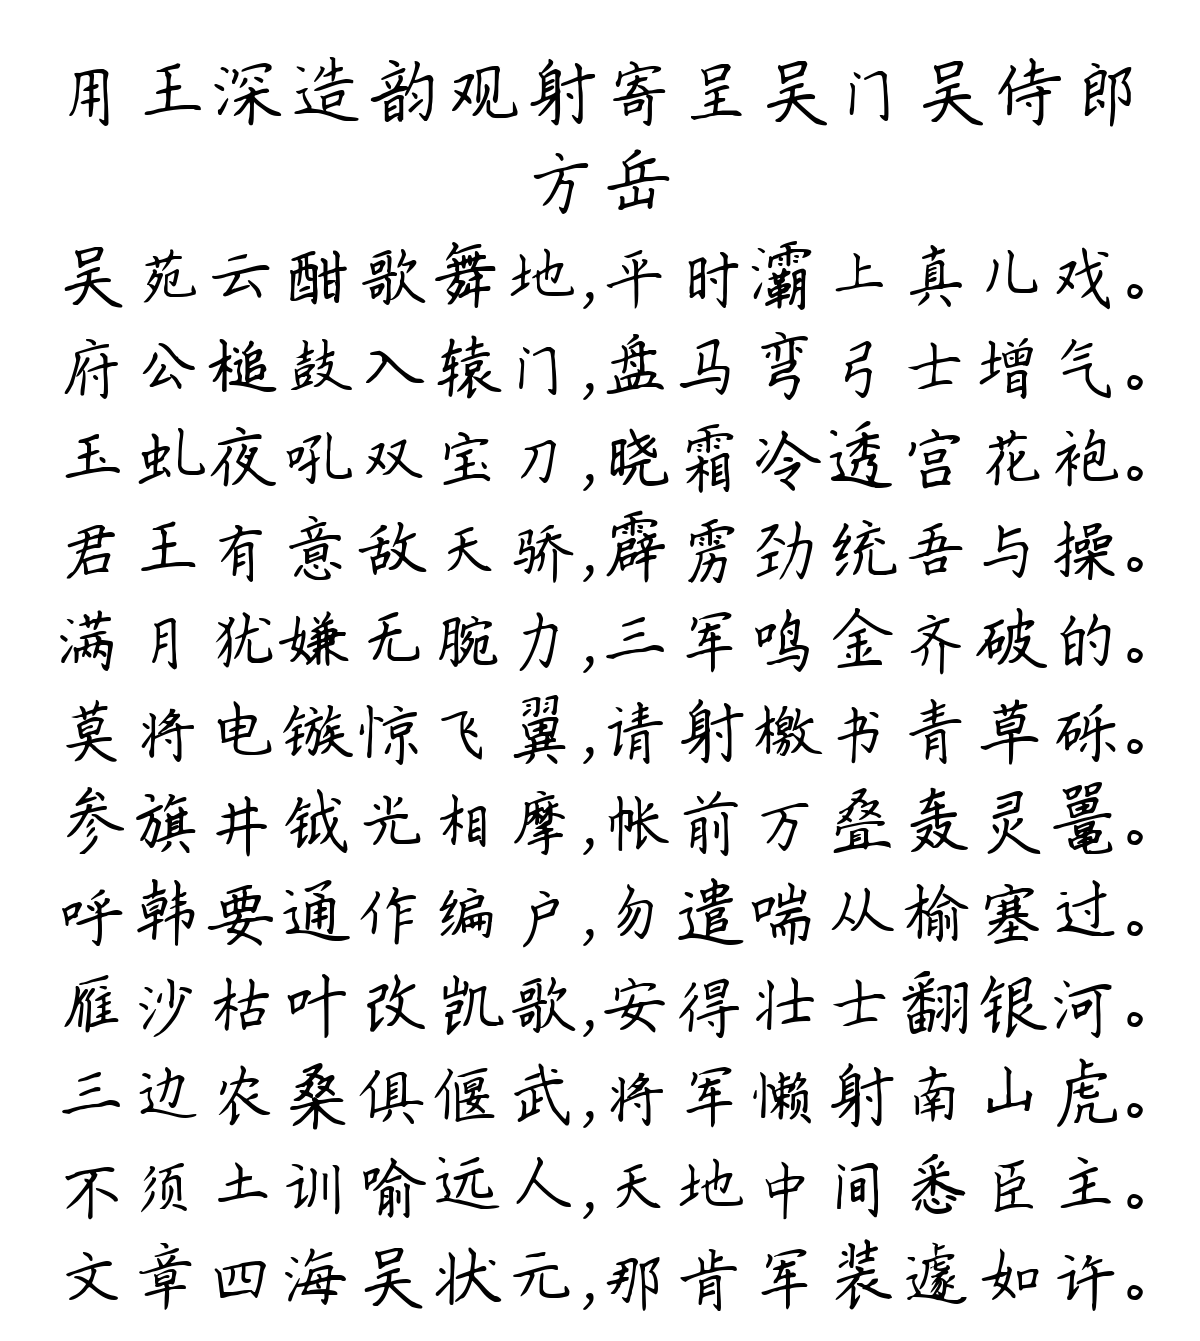 用王深造韵观射寄呈吴门吴侍郎
方岳
吴苑云酣歌舞地,平时灞上真儿戏。
府公槌鼓入辕门,盘马弯弓士增气。
玉虬夜吼双宝刀,晓霜冷透宫花袍。
君王有意敌天骄,霹雳劲统吾与操。
满月犹嫌无腕力,三军鸣金齐破的。
莫将电镞惊飞翼,请射檄书青草砾。
参旗井钺光相摩,帐前万叠轰灵鼍。
呼韩要通作编户,勿遣喘从榆塞过。
雁沙枯叶改凯歌,安得壮士翻银河。
三边农桑俱偃武,将军懒射南山虎。
不须土训喻远人,天地中间悉臣主。
文章四海吴状元,那肯军装遽如许。